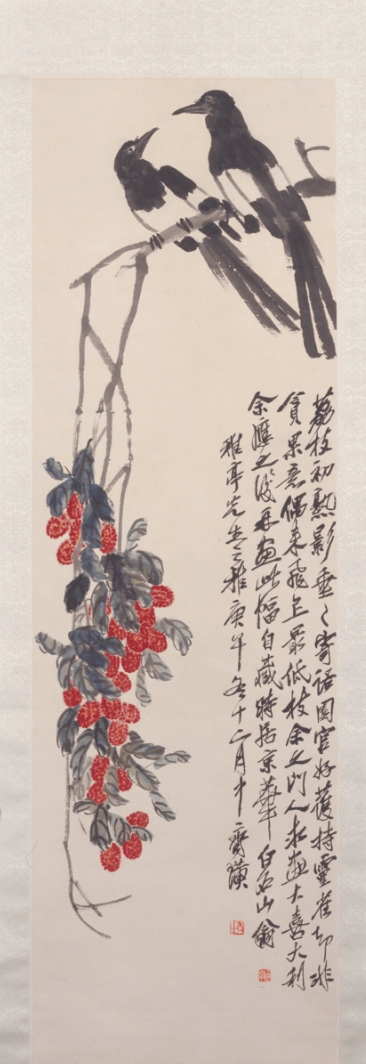 荔枝初熟影垂〻寄語園官好護持靈雀却非
貪果意偶來飛上最低枝余之門人求畫大喜大利
余應之後再畫此幅自藏時居京華白石山翁
雅亭先生之雅庚午冬十二月中齊璜